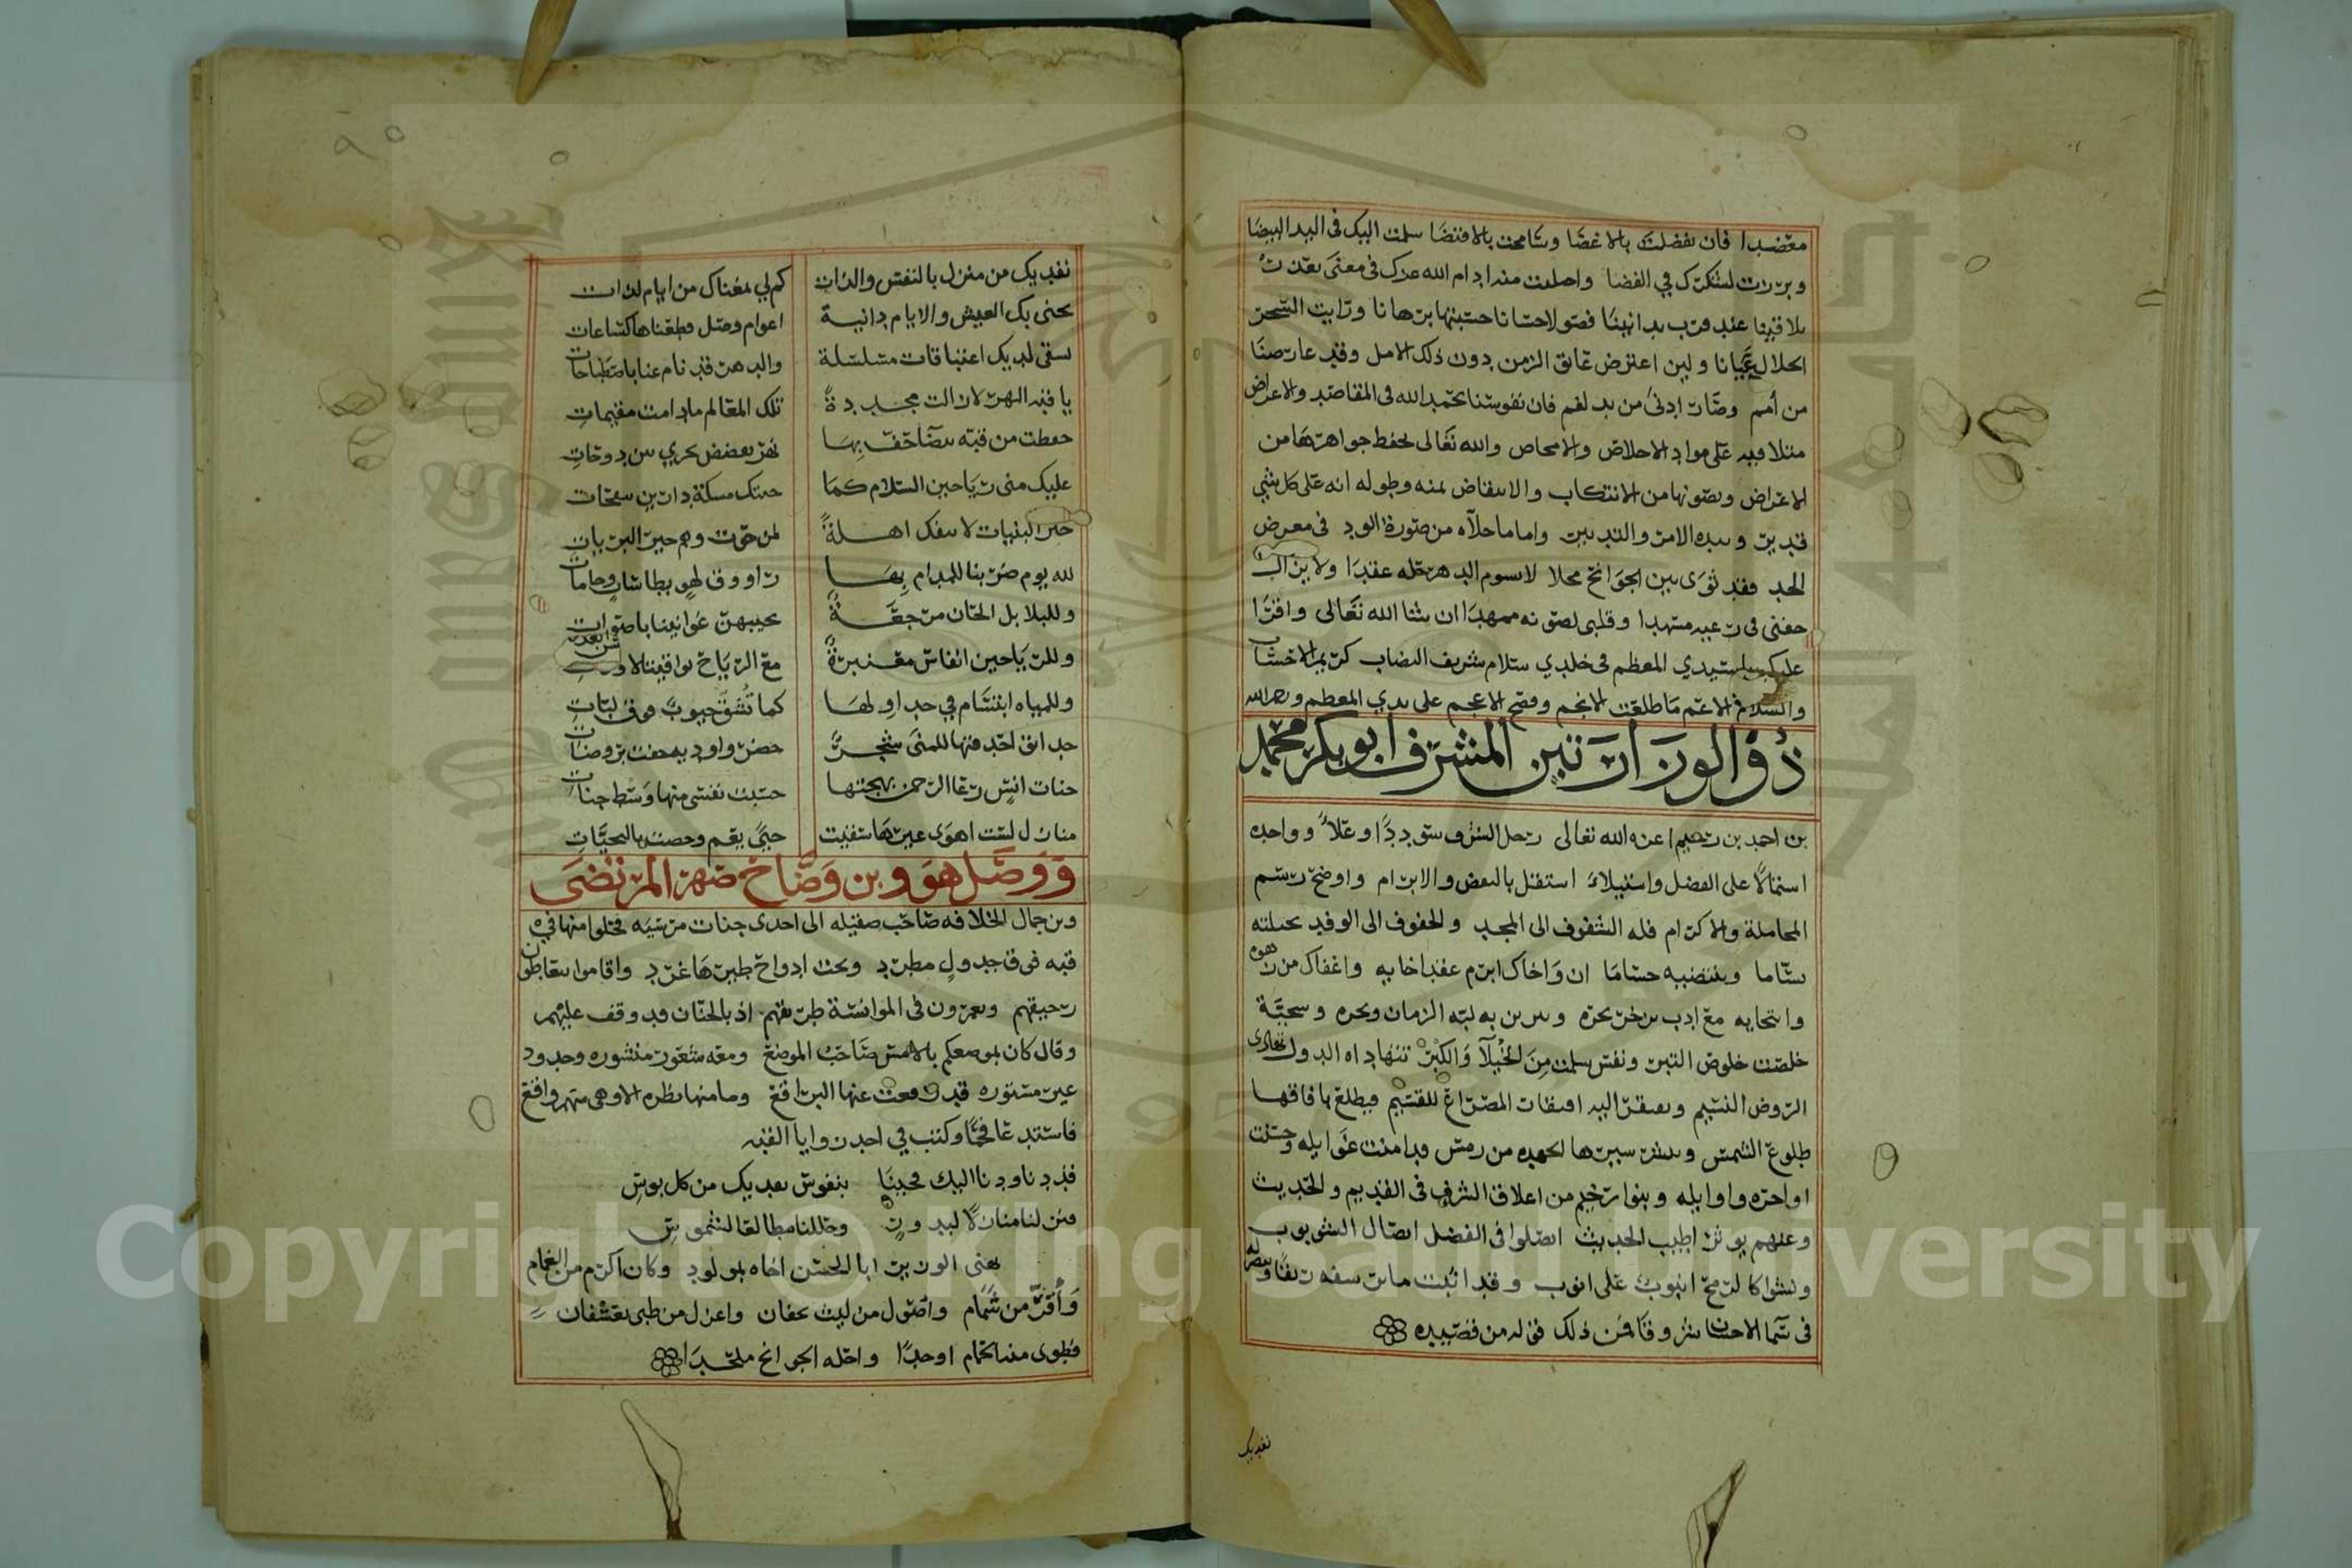 معتضدا فان تفضلت بالاغضا وسامحت بالاقتضا سلمت اليك في اليد البيضا
وبررت لشكرك في الفضا واحللت منه ادام الله عزك في معنى تعذرت
بلاقينا عند قرب بدانينا فصولا حسانا حسبتها برهانا ورايت السحر
الحلال عيانا ولين اعترض عايق الزمن دون ذلك الامل وقد عارضنا
من أمم وصار ادنى من يد لفم فان نفوسنا بحمد الله في المقاصد والاعراض
متلاقيه على موارد الاخلاص والامحاض والله تعالى يحفظ جواهرها من
الاعراض ويصونها من الانتكاب والانتقاض بمنه وطوله انه على كل شي
قدير وبيده الامر والتدبير واما ما جلاه من صورة الود في معرض
الحد فقد ثوى بين الجوانح محلا لا يسوم الدهر حله عقدا ولا يزال
جفني في رعيه مسهدا وقلبي لصونه ممهدا ان شا الله تعالى واقرا
عليك سيدي المعظم في خلدي سلام شريف النصاب كريم الاحتساب
والسلام الاعم ما طلعت الانجم وفصح الاعجم على سيدي المعظم ورحمة الله
ذو الوزارتين المشرف ابو بكر محمد
بن احمد بن رحيم اعزه الله تعالى رجل الشرف سوددا وعلاً وواحده
اشتمالا على الفضل واستيلاء استقل بالنقض والابرام واوضح رسم
المجاملة والاكرام فله الشفوف الى المجد والخفوف الى الوفد تحلته
بساما وينتضيه حساما ان واخاك ابرم عقد اخايه واعفاك من زهوه
وانتخايه مع ادب بزخر بحره ويزين به لبه الزمان ونحره وسجية
خلصت خلوص التبر ونفس سلمت من الخيلا والكبر تتهاداه الدول تهادي
الروض النسيم ويفتقر اليه افتقار المصراع للقسيم فيطلع بافاقها
طلوع الشمس وينشر سيرها لعهده من رمس قد امنت غوايله وحسنت
اواخره واوايله وبنوا رحيم من اعلاق الشرف في القديم والحديث
وعنهم يوثر اطيب الحديث اتصلوا في الفضل اتصال الشوبوب
ونسقوا كالرمح انبوب على انبوب وقد اثبت ما
في سما الاحسان شروقا فمن ذلك قوله من قصيده
نفديك
نفديك من منزل بالنفس والذات كم لي بمغناك من ايام لذات
نجني بك العيش والايام دانية اعوام وصل قطعناها كساعات
نسقى لديك اغتباقات مسلسلة والدهر قد نام عنا باصطباحات
يا قبة الدهر لا زالت مجددة تلك المعالم ما دامت مقيمات
حفظت من قبه بيضا حف بها نهر بفضض يجري بين دوحات
عليك مني رياحين السلام كما حيتك مسكة دارين بنفحات
خير البنيات لا تنفك اهلة لمن حوت وهم خير البريات
لله يوم ضربنا للمدام بها رواوق لهو بطاسات وجامات
وللبلابل الحان مرجعة يجيبهن غوانينا باصوات
وللرياحين انفاس معنبرة مع الرياح توافينا لاوقات
وللمياه ابتسام في جداولها كما تشق جيوب فوق لبات
حدايق احدقتها للمنى شجر خضر واوديه حفت بروضات
جنات انس رعا الرحمن بهجتها حسبت نفسي منها وسط جنات
منازل لست اهوى غيرها سقيت حيا يعم وخصت بالتحيات
ووصل هو وبن وضاح صهر المرتضى
وبن جمال الخلافه صاحب صقيله الى احدى جنات مرسيه فحلوا منها في
قبه فوق جدول مطرد وتحت ادواح طيرها غرد واقاموا يتعاطون
رحيقهم ويعمرون في الموانسة طريقهم اذ بالجنان قد وقف عليهم
وقال كان بموضعكم بالامس صاحب الموضع ومعه شعور منشوره وخدود
غير مستوره قد رفعت عنها البراقع وما منها نظره الا وهي سهم واقع
فاستدعا فحما وكتب في احد زوايا القبه
قد دنا ودنا اليك فجينا بنفوس تفديك من كل بوس
فنزلنا منازلا لبدور وحللنا مطالعا لشموس
يهنى الوزير ابا الحسن اخاه بمولود وكان اكرم من الغمام
وأقر من شمام واصول من ليث بخفان واغزل من ظبي بعسفان
فطوى منه الحمام اوحدا واحله الجوانح ملحدا